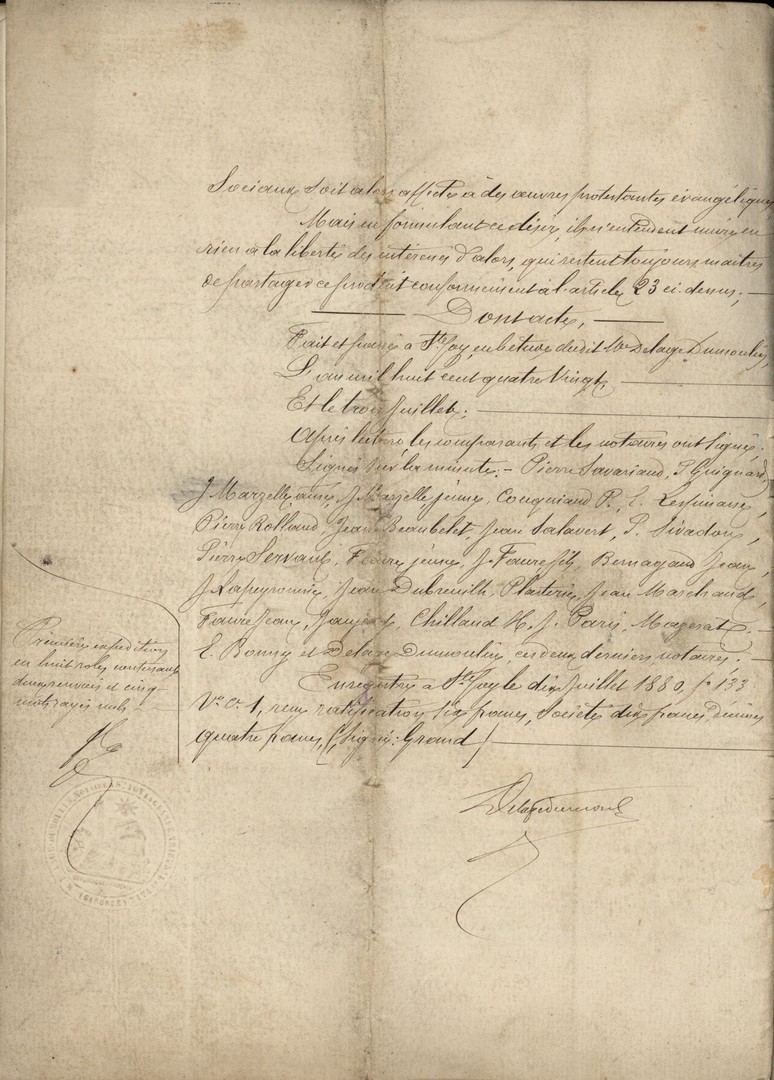 Sociaux soit alors affectés à des œuvres protestantes évangéliques
Mais en formulant ce désir, ils n'entendent nuire en
rien à la liberté des intéressés d'alors, qui restent toujours maitres
de partager ce produit conformément à l'article 23 ci dessus,
Dont acte,
Fait et passé à Ste Foy, en l'étude dudit Me Delage Dumoulin,
L'an mil huit cent quatre Vingt,
Et le trois Juillet.
Après lecture les comparants et les notaires ont signé,
Signés sur la minute: Pierre Savariaud, P. Guignard,
J Marzelle ainé, J Marzelle jeune, Couquiaud P., E.
Pierre Rolland, Jean Beaubelet, Jean Salavert, P. Sivadon,
Pierre Servant, Faure jeune, J. Faure fils, Bernagaud Jean,
J. Lapeyronnie, Jean Dubreuilh, Plasterie, Jean Marchand,
Faure Jean, Chillaud H, J. Paris, Mazerat,
E. Bonny et Delage Dumoulin, ces deux derniers notaires.
Enregistré à Ste Foy le dix Juillet 1880, fo 133
Vo Ce 1, reçu ratification six francs, société dix francs, décimes
quatre francs, (Signé: Grand)
Première expédition
en huit roles contenant
deux renvois et cinq
mots rayés nuls
Delagedumoulin